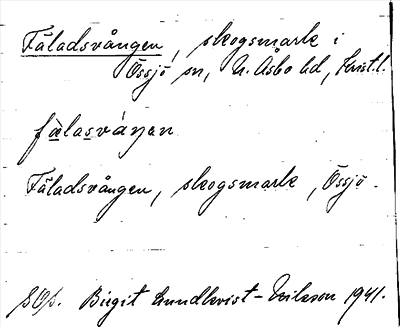 Fäladsvången, skogsmark i
Össjö sn, N. Åsbo hd, Krist. l.
fælasváŋen
Fäladsvången, skogsmark, Össjö.
Birgit Lundkvist-Eriksson 1941.